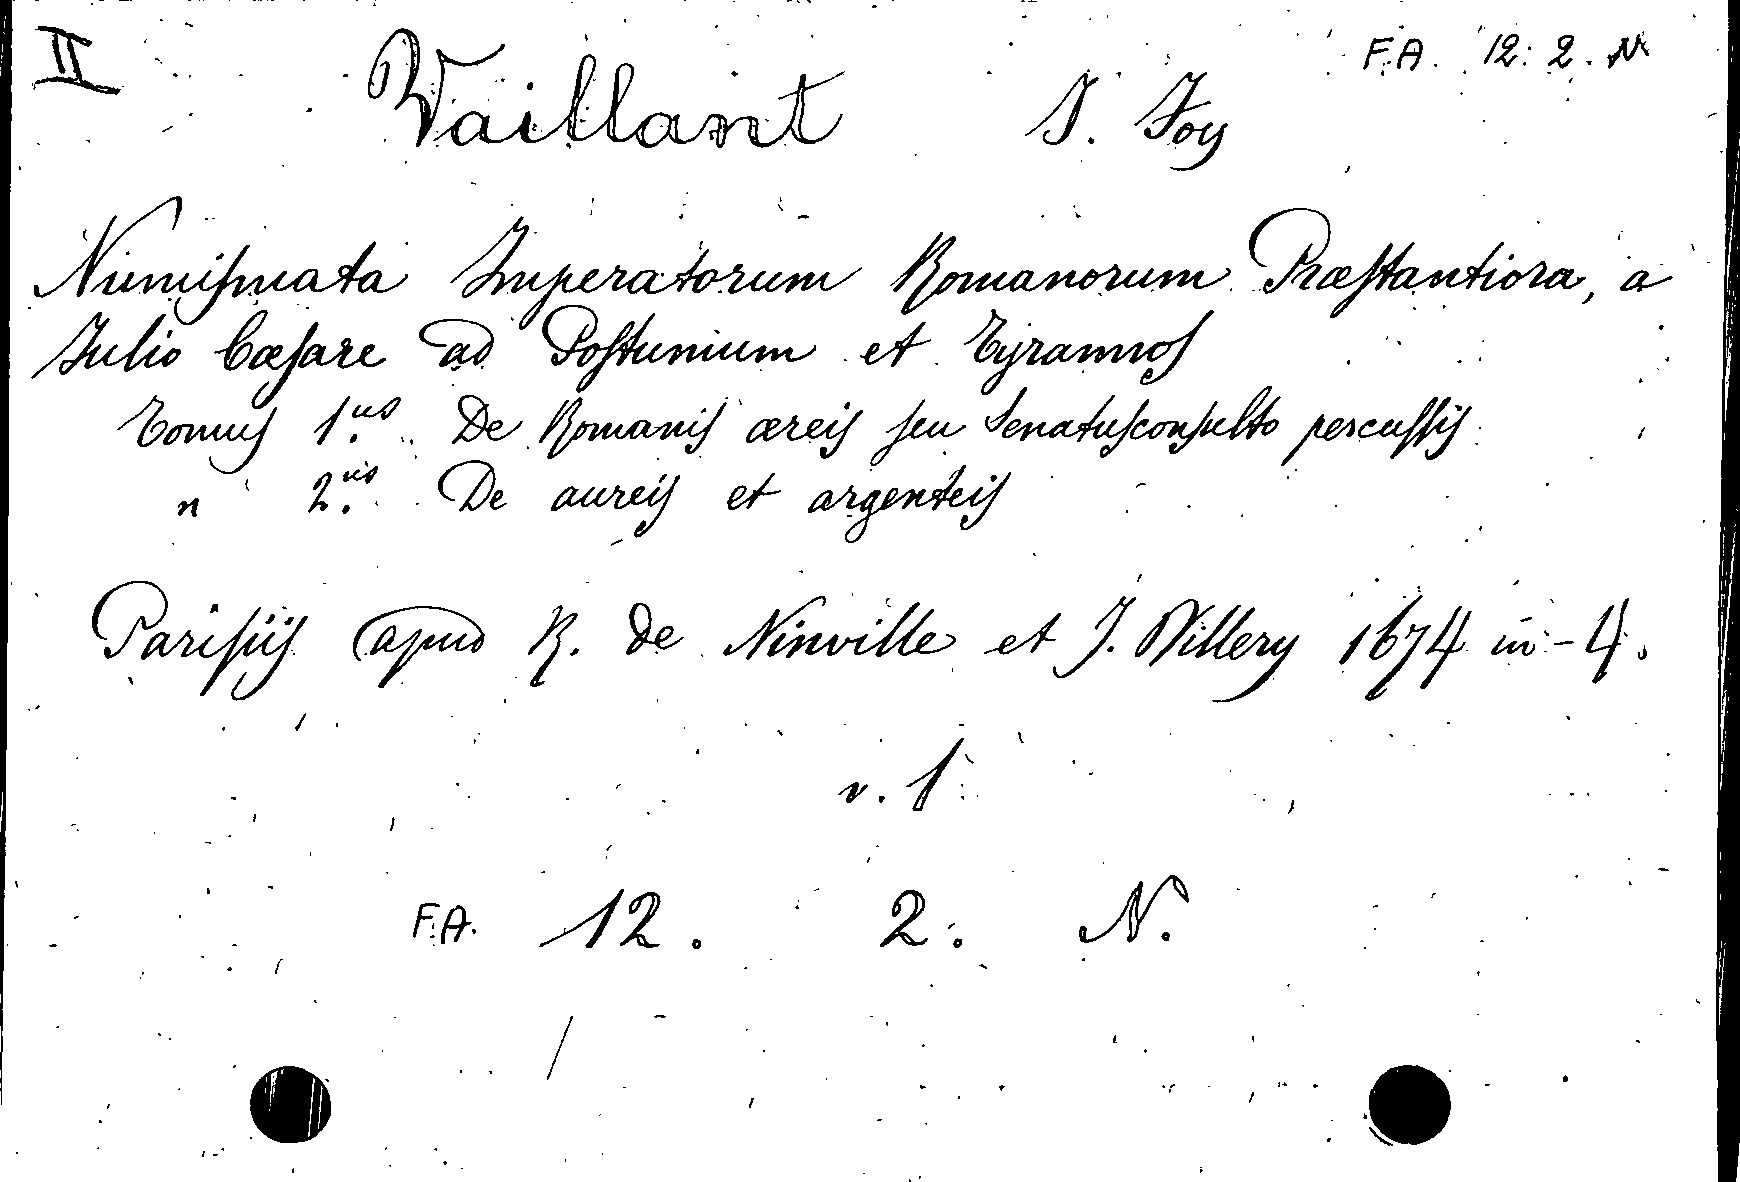 II
F.A. 12. 2. N
Vaillant J. Foy
Numiſmata Imperatorum Romanorum Præſtantiora, a
Julio Cæſare ad Poſtumium et Tyrannoſ
Tomuſ 1.us De Romaniſ æreiſ ſeu Senatuſconſulto percuſſiſ
" 2.us De aureiſ et argenteiſ
Pariſiiſ apud R. de Ninville et J. Villery 1674 in-4.
v. 1
F.A. 12. 2. N.